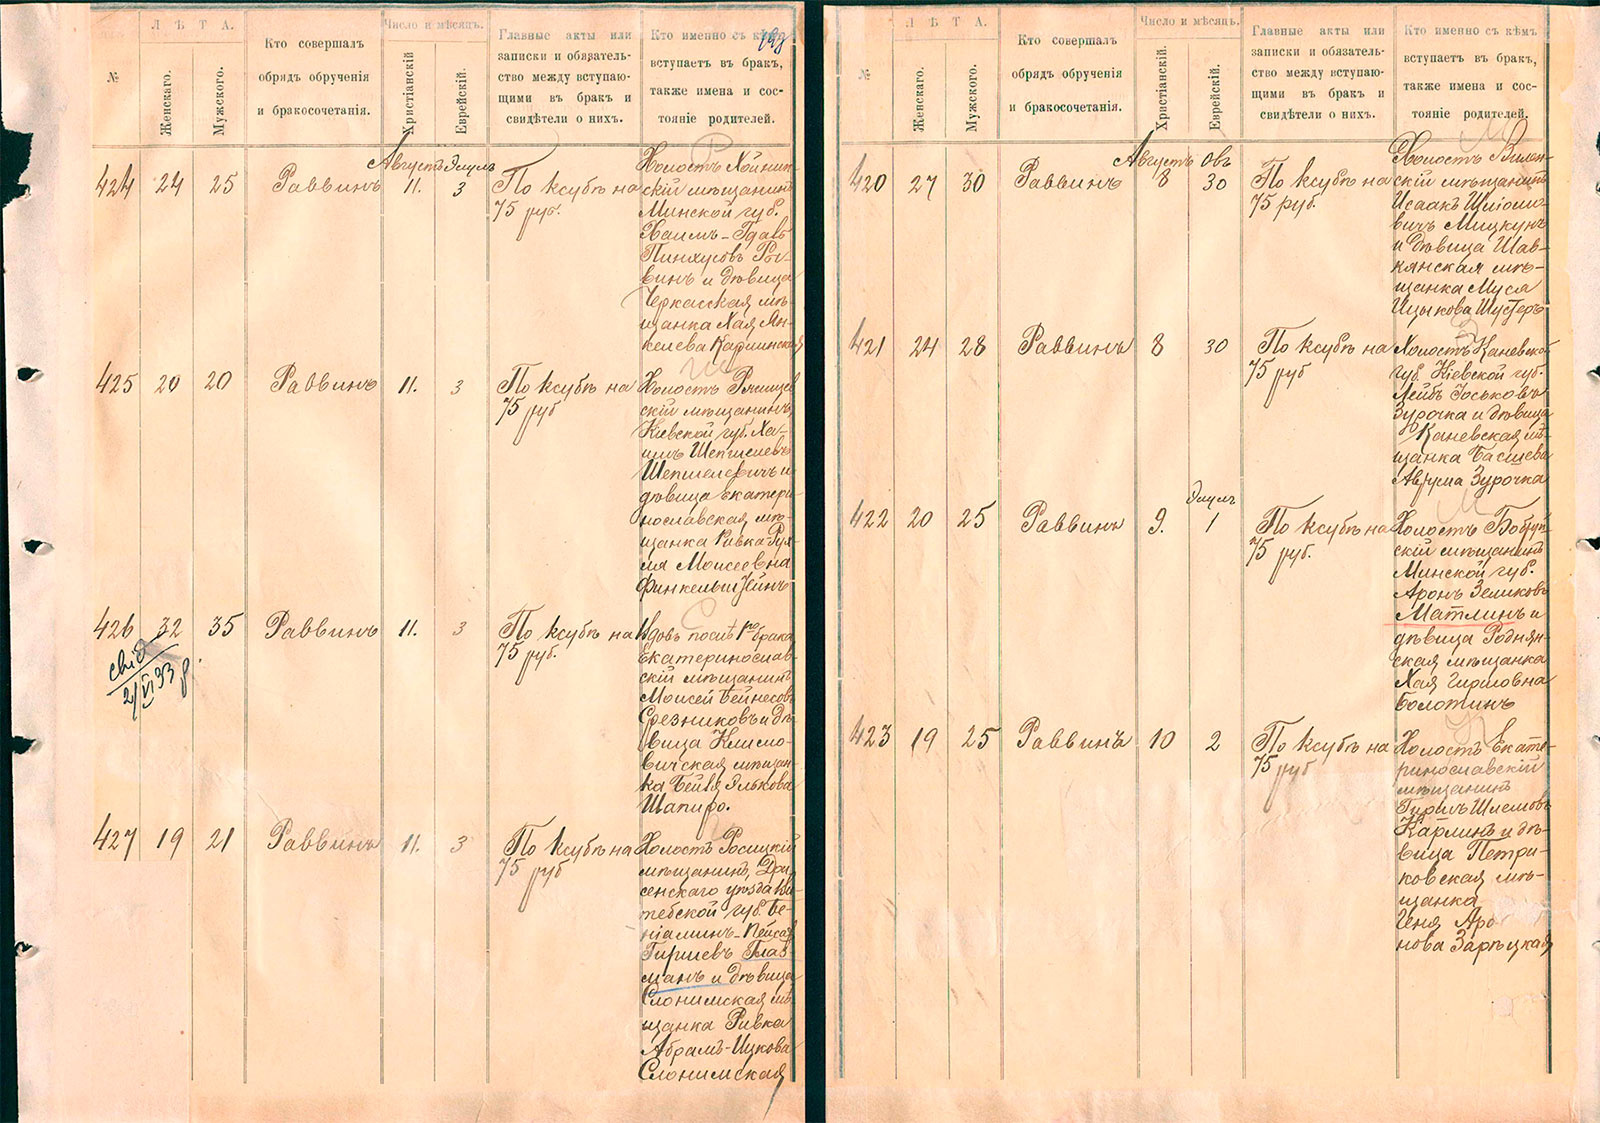 198
Л Ѣ Т А.
Число и мѣсяцъ.
№
Женскаго.
Мужского.
Кто совершалъ
обрядъ обрученія
и бракосочетанія.
Христіанскій
Еврейскій.
Главные акты или
записки и обязатель-
ство между вступаю-
щими въ бракъ и
свидѣтели о нихъ.
Кто именно съ кѣмъ
вступаетъ въ бракъ,
также имена и сос-
тояніе родителей.
Р
Августъ Элулъ
424 24 25 Раввинъ 11. 3
По ксубѣ на
75 руб.
Холостъ Хойник-
скій мѣщанинъ
Минской губ.
Хаимъ-
Пинхусовъ
винъ и дѣвица
Черкасская мѣ-
щанка Хая Ян-
келева Карлинская
Ш
425 20 20 Раввинъ 11. 3
По ксубѣ на
75 руб
Холостъ Ржищев
скій мѣщанинъ,
Кіевской губ. Ха-
имъ
и
дѣвица Екатери-
нославская мѣ-
щанка Ривка-Рух-
ля Моисеевна
Финкельштейнъ
С
426 32 35 Раввинъ 11. 3
свід
2/VI 33 р.
По ксубѣ на
75 руб.
Вдовъ послѣ 1го брака
Екатеринослав-
скій мѣщанинъ
Моисей Бейнесовъ
Срезниковъ и дѣ-
вица Климо-
вичская мѣщан-
ка Бейля Элькова
Шапиро.
427 19 21 Раввинъ 11. 3
По ксубѣ на
75 руб
Холостъ Росицкій
мѣщанинъ, Дри-
сенскаго уѣзда Ви-
тебской губ. Бе-
ніаминъ-Пейсах
Гиршевъ Глаз-
манъ и дѣвица
Слонимская мѣ-
щанка Ривка
Абрамъ-Ицкова
Слонимская
Л Ѣ Т А.
Число и мѣсяцъ.
№
Женскаго.
Мужского.
Кто совершалъ
обрядъ обрученія
и бракосочетанія.
Христіанскій.
Еврейскій.
Главные акты или
записки и обязатель-
ство между вступаю-
щими въ бракъ и
свидѣтели о нихъ.
Кто именно съ кѣмъ
вступаетъ въ бракъ,
также имена и сос-
тояніе родителей.
М
Августъ Овъ
420 27 30 Раввинъ 8 30
По ксубѣ на
75 руб.
Холостъ Вилен-
скій мѣщанинъ
Исаакъ Шліомо-
вичъ Мицкунъ
и дѣвица Шав-
кянская мѣ-
щанка Муся
Ицыкова Шустеръ
З
421 24 28 Раввинъ 8 30
По ксубѣ на
75 руб
Холостъ Каневской
губ. Кіевской губ.
Лейбъ Іоськовъ
Зурочка и дѣвица
Каневская мѣ-
щанка Басшева
Аврума Зурочка
М
Элулъ
422 20 25 Раввинъ 9. 1
По ксубѣ на
75 руб.
Холостъ Бобруй-
скій мѣщанинъ
Минской губ.
Аронъ Зеликовъ
Матлинъ и
дѣвица Роднян-
ская мѣщанка
Хая Гиршовна
Болотинъ
К
423 19 25 Раввинъ 10 2
По ксубѣ на
75 руб
Холостъ Екате-
ринославскій
мѣщанинъ
Гиршъ Шлемовъ
Карлинъ и дѣ-
вица Петри-
ковская мѣ-
щанка
Геня Аро
нова Зарѣцкая